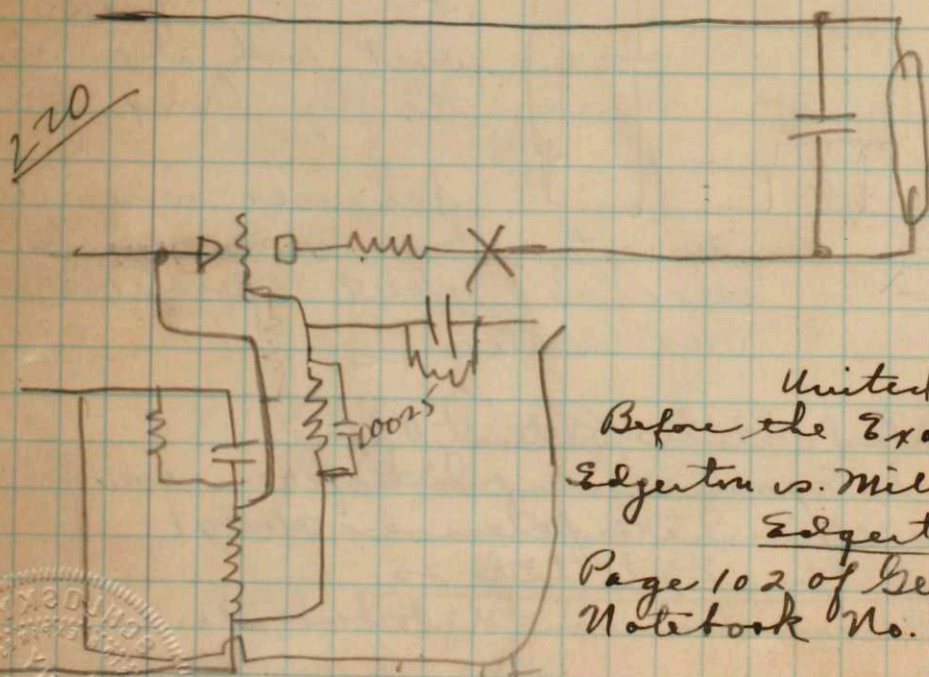 220
.00025
United
Before the Exa
Edgerton vs. Mil
Edgert
Page 102 of Ge
Notebook No.